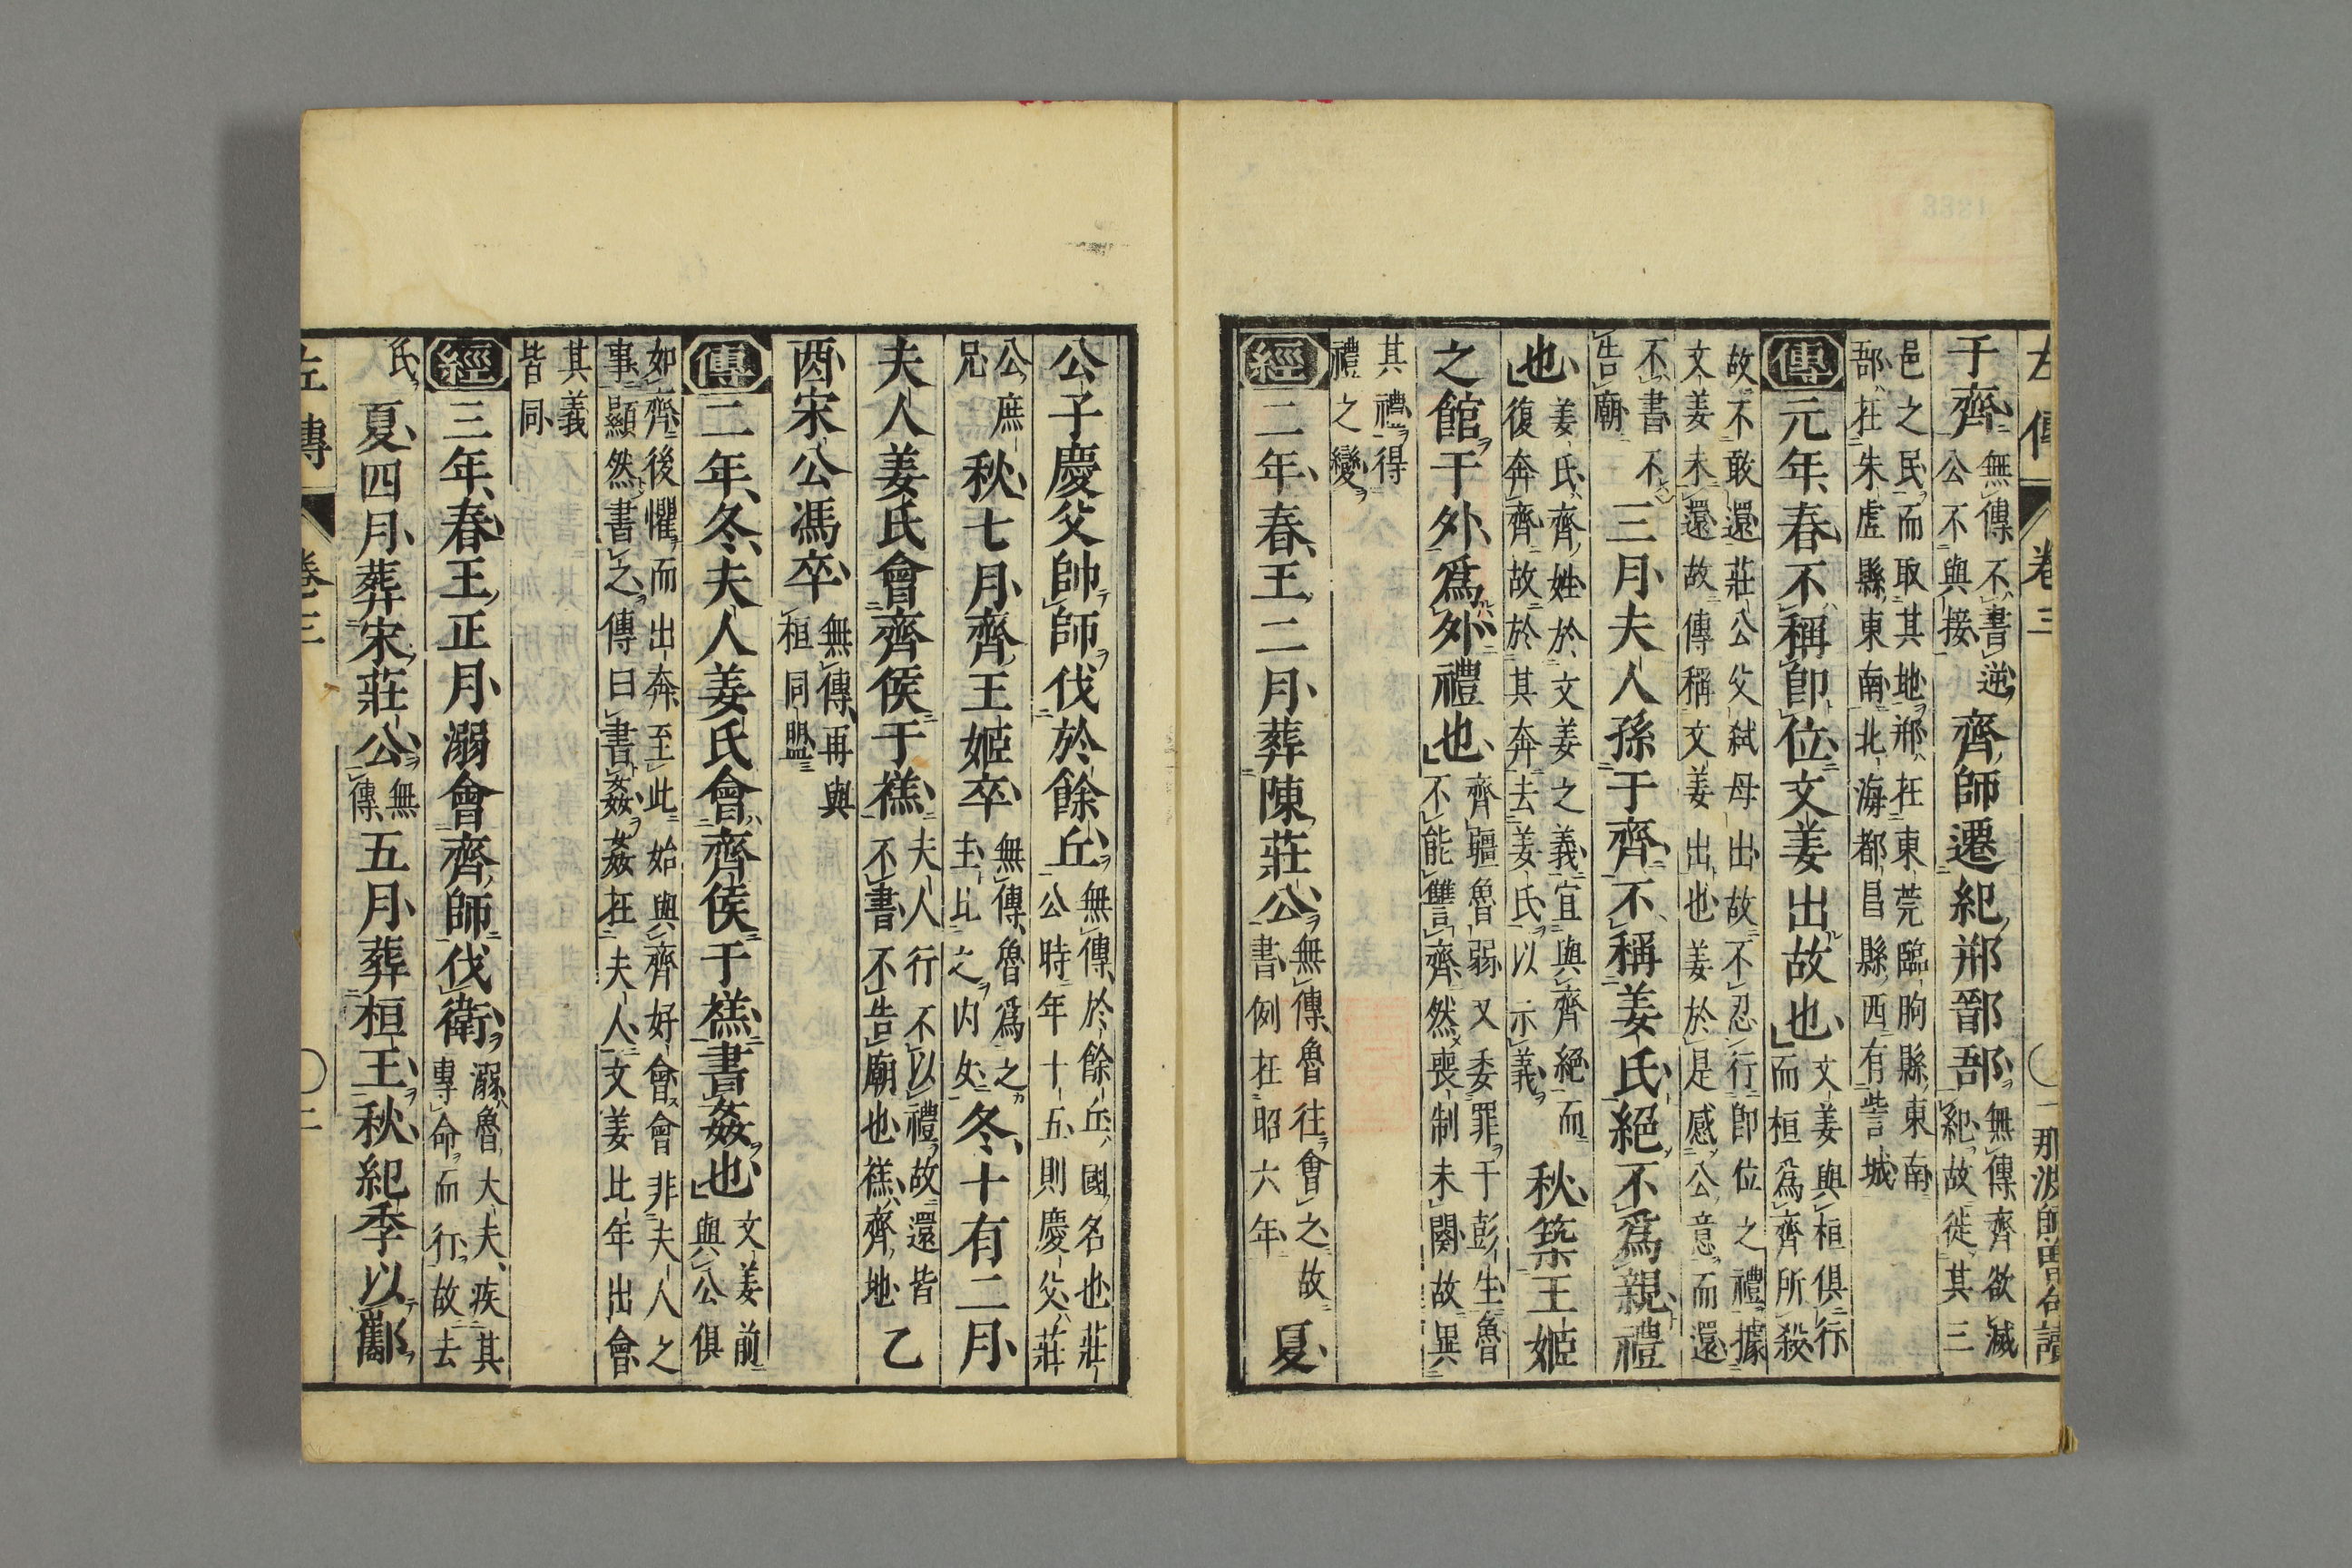 左傳 卷三 〇一 那波師曾句讀
于齊無傳不書逆公不與接齊師遷紀郱鄑郚無傳齊欲滅紀故徙其三
邑之民而取其地郱在東莞臨朐縣東南
郚在朱虛縣東南北海都昌縣西有訾城
傳元年春不稱卽位文姜出故也文姜與桓俱行而桓爲齊所殺
故不敢還莊公父弑母出故不忍行卽位之禮據
文姜未還故傳稱文姜出也姜於是感公意而還
不書不告廟三月夫人孫于齊不稱姜氏絕不爲親禮
也姜氏齊姓於文姜之義宜與齊絕而復奔齊故於其奔去姜氏以示義秋築王姬
之館于外爲外禮也齊彊魯弱又委罪于彭生魯不能讐齊然喪制未闋故異
其禮得禮之變
經二年春王二月葬陳莊公無傳魯往會之故書例在昭六年夏
公子慶父帥師伐於餘丘無傳於餘丘國名也莊公時年十五則慶父莊
公庶兄秋七月齊王姬卒無傳魯爲之主比之内女冬十有二月
夫人姜氏會齊侯于禚夫人行不以禮故還皆不書不告廟也禚齊地乙
酉宋公馮卒無傳再與桓同盟
傳二年冬夫人姜氏會齊侯于禚書姦也文姜前與公俱
如齊後懼而出奔至此始與齊好會會非夫人之
事顯然書之傳曰書姦姦在夫人文姜比年出會
其義皆同
經三年春王正月溺會齊師伐衛溺魯大夫疾其專命而行故去
氏夏四月葬宋莊公無傳五月葬桓王秋紀季以酅
左傳 卷三 〇二